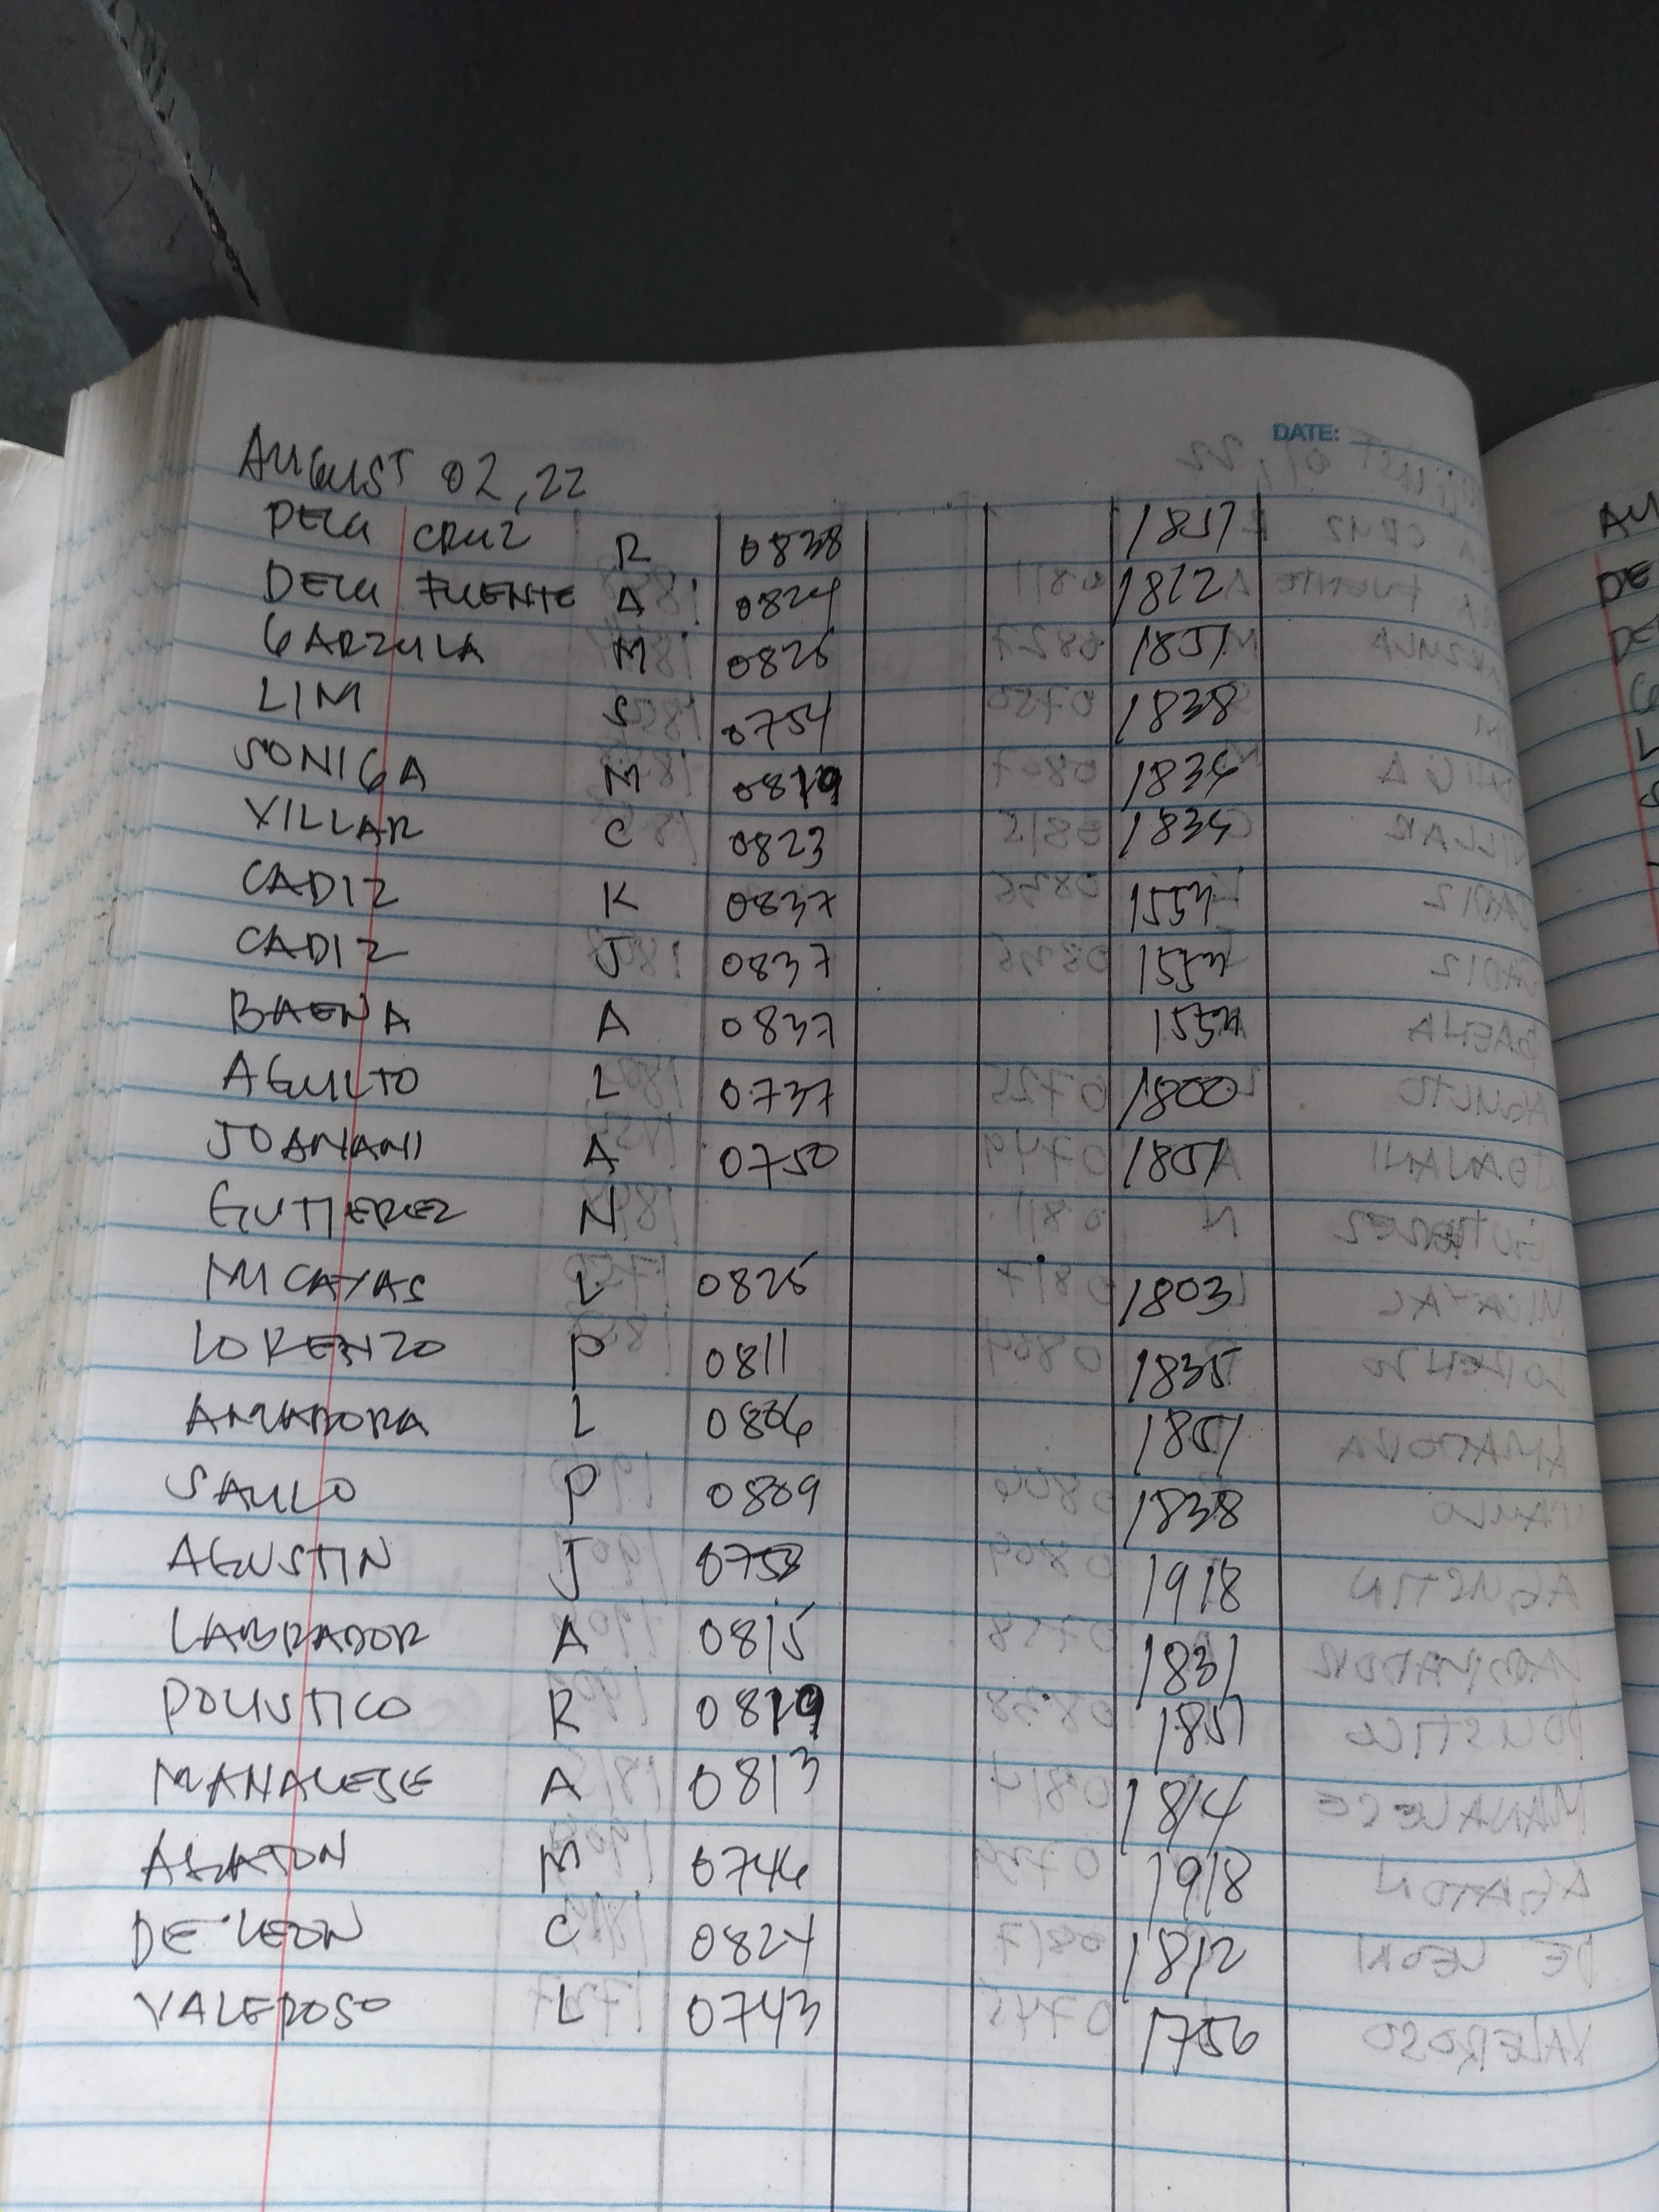 DATE:
AUGUST 02, 22
DELA CRUZ R 0838 1851
DELA FUENTE A 0824 1812
GARZULA M 0826 1851
LIM S 0754 1838
SONIGA M 0819 1834
VILLAR C 0823 1834
CADIZ K 0837 1554
CADIZ J 0837 1554
BAENA A 0837 1554
AGULTO L 0737 1800
JOANANI A 0750 1801
GUTIEREZ N
MICAYAS L 0825 1803
LORENZO P 0811 1835
AMADORA L 0806 1801
SAULO P 0809 1838
AGUSTIN J 0753 1918
LABRADOR A 0815 1831
POLISTICO R 0819 1851
MANALESE A 0813 1814
AGATON M 0746 1918
DE LEON C 0824 1812
VALEROSO L 0743 1756